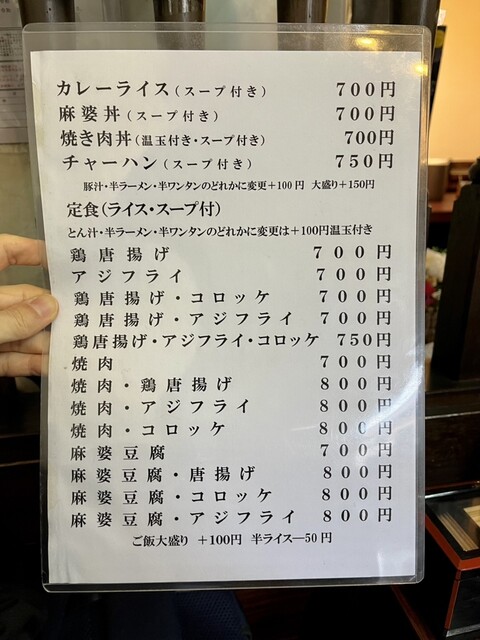 カレーライス(スープ付き) 700円
麻婆丼(スープ付き) 700円
焼き肉丼(温玉付き・スープ付き) 700円
チャーハン(スープ付き) 750円
豚汁・半ラーメン・半ワンタンのどれかに変更+100円 大盛り+150円
定食(ライス・スープ付)
とん汁・半ラーメン・半ワンタンのどれかに変更は+100円温玉付き
鶏唐揚げ 700円
アジフライ 700円
鶏唐揚げ・コロッケ 700円
鶏唐揚げ・アジフライ 700円
鶏唐揚げ・アジフライ・コロッケ 750円
焼肉 700円
焼肉・鶏唐揚げ 800円
焼肉・アジフライ 800円
焼肉・コロッケ 800円
麻婆豆腐 700円
麻婆豆腐・唐揚げ 800円
麻婆豆腐・コロッケ 800円
麻婆豆腐・アジフライ 800円
ご飯大盛り +100円 半ライス―50円